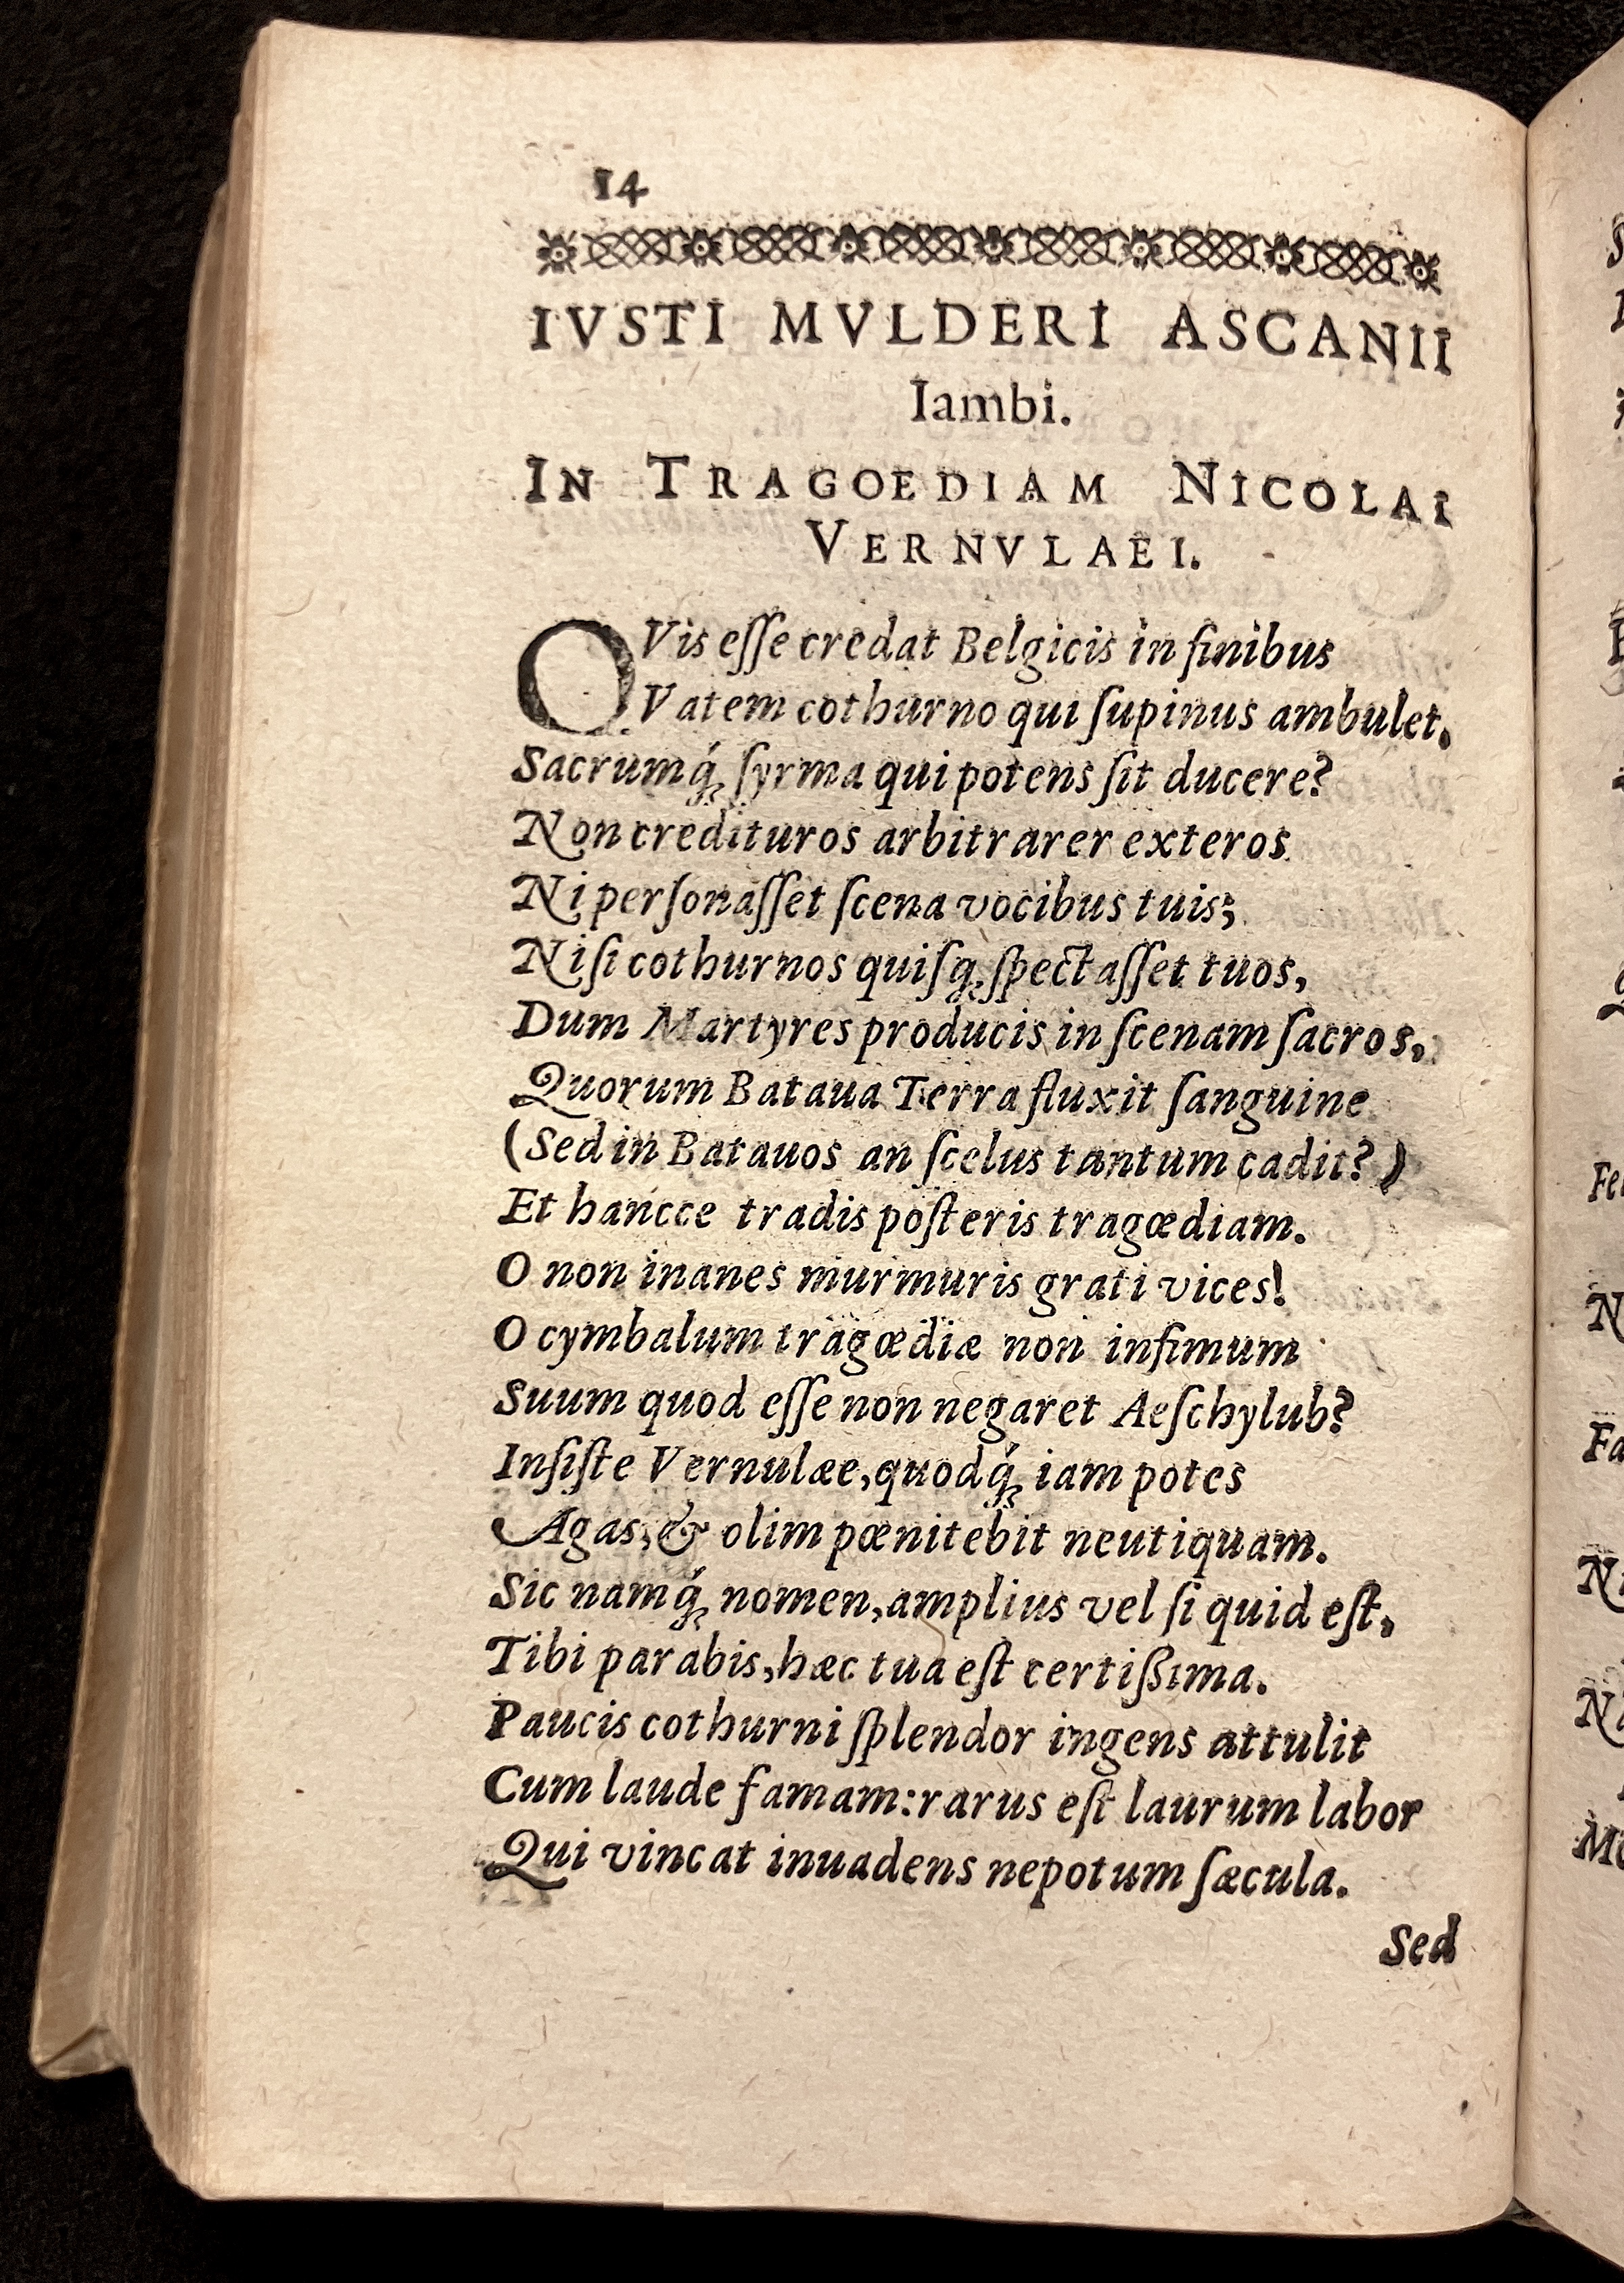 14
IVSTI MVLDERI ASCANII
Iambi.
IN TRAGOEDIAM NICOLAI
VERNVLAEI.
OVis eſſe credat Belgicis in finibus
Vatem cothurno qui ſupinus ambulet,
Sacrumq́ꝫ ſyrma qui potens ſit ducere?
Non credituros arbitrarer exteros
Ni perſonaſſet ſcena vocibus tuis;
Niſi cothurnos quiſqꝫ ſpectaſſet tuos,
Dum Martyres producis in ſcenam ſacros,
Quorum Bataua Terra fluxit ſanguine
(Sed in Batauos an ſcelus tantum cadit?)
Et hancce tradis poſteris tragœdiam.
O non inanes murmuris grati vices!
O cymbalum tragœdiæ non infimum
Suum quod eſſe non negaret Aeſchylub?
Inſiſte Vernulæe, quodq́ꝫ iam potes
Agas, & olim pœnitebit neutiquam.
Sic namq́ꝫ nomen, amplius vel ſi quid eſt,
Tibi parabis, hæc tua eſt certißima.
Paucis cothurni ſplendor ingens attulit
Cum laude famam: rarus eſt laurum labor
Qui vincat inuadens nepotum ſæcula.
Sed